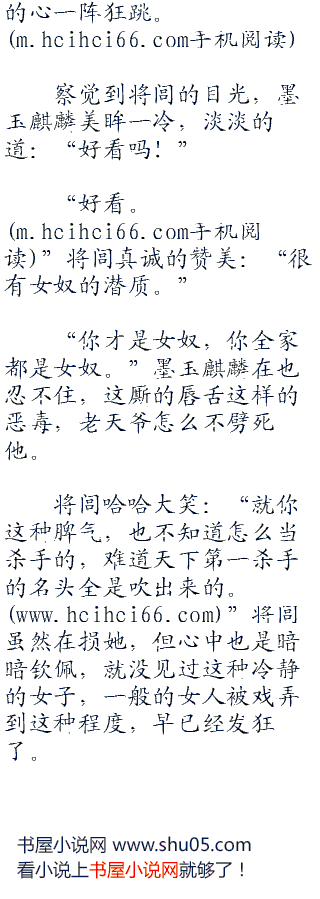 的心一阵狂跳。
(m.hcihci66.com手机阅读)
察觉到将闾的目光，墨
玉麒麟美眸一冷，淡淡的
道：“好看吗！”
“好看。
(m.hcihci66.com手机阅
读)”将闾真诚的赞美：“很
有女奴的潜质。”
“你才是女奴，你全家
都是女奴。”墨玉麒麟在也
忍不住，这厮的唇舌这样的
恶毒，老天爷怎么不劈死
他。
将闾哈哈大笑：“就你
这种脾气，也不知道怎么当
杀手的，难道天下第一杀手
的名头全是吹出来的。
(www.hcihci66.com)”将闾
虽然在损她，但心中也是暗
暗钦佩，就没见过这种冷静
的女子，一般的女人被戏弄
到这种程度，早已经发狂
了。
书屋小说网 www.shu05.com
看小说上书屋小说网就够了！